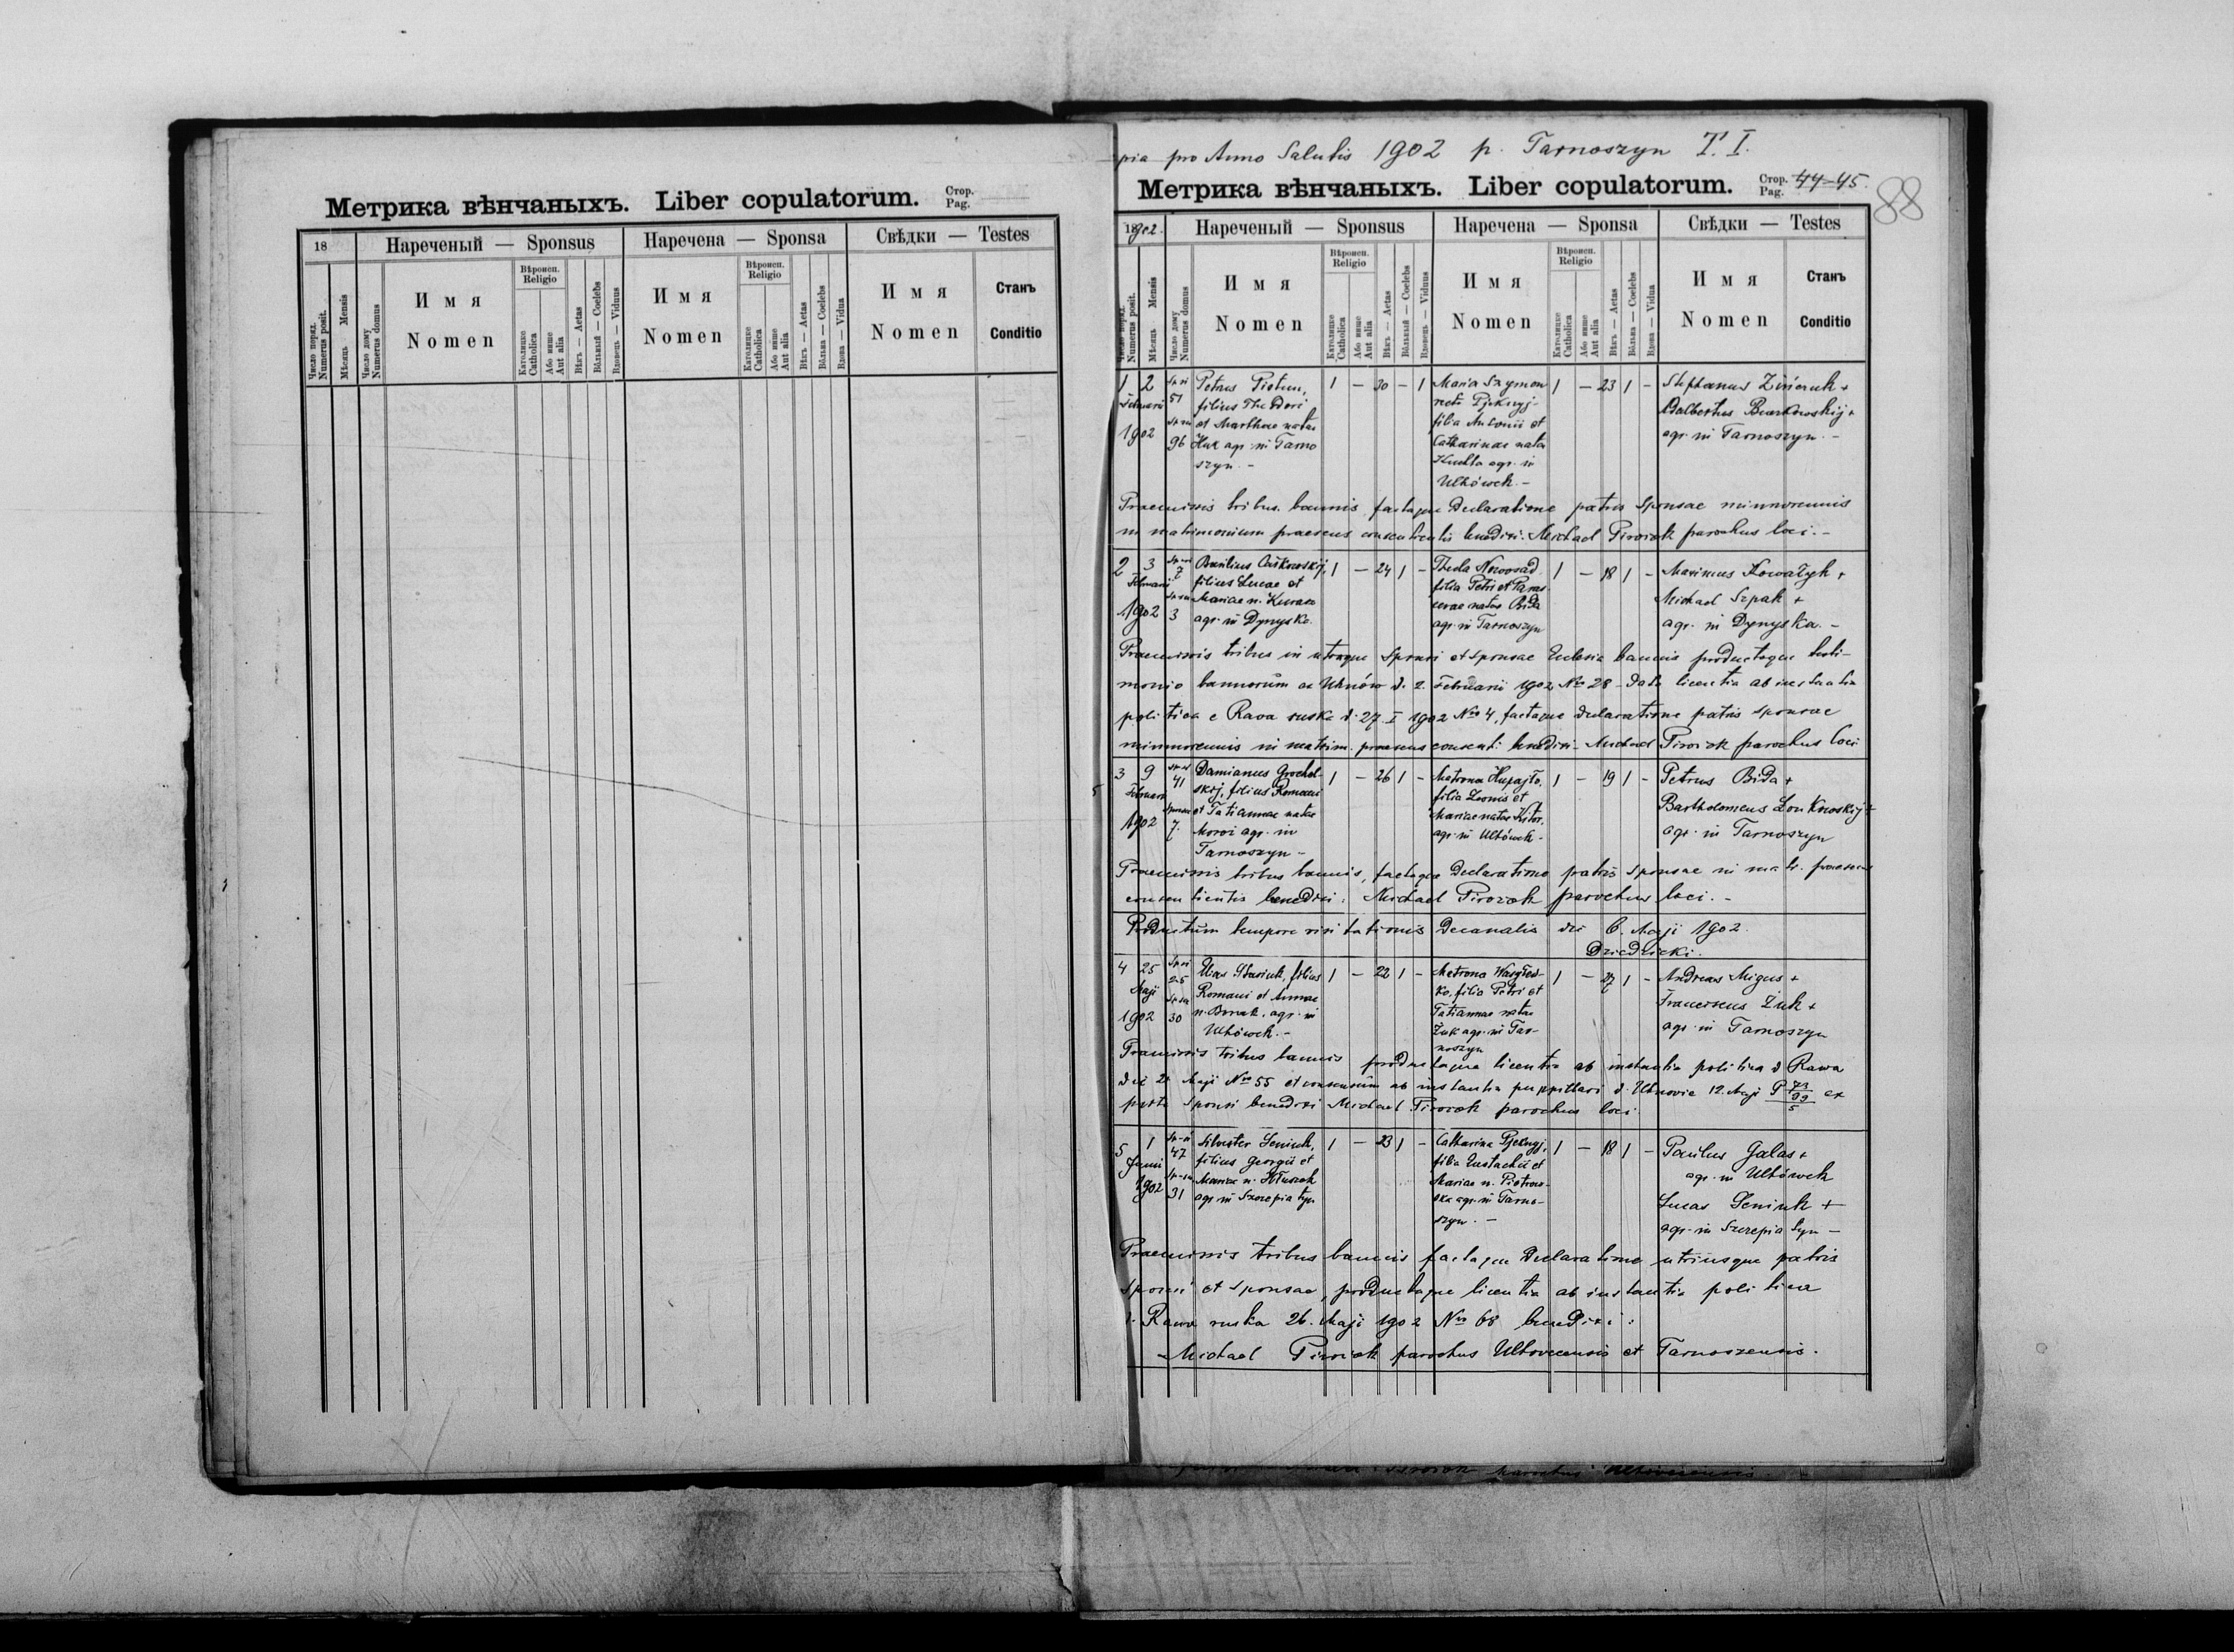 Метрика вѣнчаныхъ. Liber copulatorum. Стор. Pag.
18 Нареченый — Sponsus Наречена — Sponsa Свѣдки — Testes
Число поряд. Numerus posit.
Мѣсяць Mensis
Число дому Numerus domus
Имя Nomen
Вѣроисп. Religio
Католицке Catholica
Або инше Aut alia
Вѣкъ — Aetas
Вôльный — Coelebs
Вдовець — Viduus
Имя Nomen
Вѣроисп. Religio
Католицке Catholica
Або инше Aut alia
Вѣкъ — Aetas
Вôльна — Coelebs
Вдова — Vidua
Имя Nomen
Станъ Conditio
pia pro Anno Salutis 1902 p. Tarnoszyn T. I.
Метрика вѣнчаныхъ. Liber copulatorum. Стор. Pag. 44-45.
88
1902. Нареченый — Sponsus Наречена — Sponsa Свѣдки — Testes
Число поряд. Numerus posit.
Мѣсяць Mensis
Число дому Numerus domus
Имя Nomen
Вѣроисп. Religio
Католицке Catholica
Або инше Aut alia
Вѣкъ — Aetas
Вôльный — Coelebs
Вдовець — Viduus
Имя Nomen
Вѣроисп. Religio
Католицке Catholica
Або инше Aut alia
Вѣкъ — Aetas
Вôльна — Coelebs
Вдова — Vidua
Имя Nomen
Станъ Conditio
1 2 Februarii 1902
51
96
Petrus Piotrun,
filius Theodori
et Marthae natae
Huk agr. in Tarno
szyn. -
1 — 30 — 1
Maria Szymon
recte Pjeknyj
filia Antonii et
Catharinae natae
agr. in
Uhtówek. -
1 — 23 1 —
Stephanus +
Adalbertus +
agr. in Tarnoszyn. -
Praemissis tribus bannis factaque declaratione patris sponsae minnorennis
in matrimonium praesens consentientis benedixi. Michael Pirożok parochus loci. -
2 3 Februarii 1902
7
3
Basilius
filius Lucae et
Mariae n.
agr. in Dynyska.
1 — 24 1 —
Thecla Nowosad
filia Petri et Paras
cevae natae Bida
agr. in Tarnoszyn
1 — 18 1 —
Maximus Kowałyk +
Michael Szpak +
agr. in Dynyska. -
Praemissis tribus in utraque Sponsi et Sponsae Ecclesia bannis productoque testi-
monio bannorum ex Uhnów d. 2. Februarii 1902 Nro 28 - data licentia ab instantia
politica e Rava ruska d. 27. I 1902 Nro 4, factaque declaratione patris sponsae
minnorennis in matrim. praesens consenti. benedixi - Michael Pirożok parochus loci
3 9 Februarii 1902
41
7.
Damianus Grochol-
skij, filius Romani
et Tatiannae natae
Moroz agr. in
Tarnoszyn -
1 — 26 1 —
Matrona Hupajło,
filia Leonis et
Mariae natae
agr. in Uhtówek -
1 — 19 1 —
Petrus Bida +
Bartholomeus +
agr. in Tarnoszyn
Praemissis tribus bannis, factaque declaratione patris sponsae in matr. praesens
consentientis benedixi: Michael Pirożok parochus loci. -
Productum tempore visitationis Decanalis die 6. Maji 1902.
Dziedzicki.
4 25 Maji 1902
25
30
Elias Stasiuk, filius
Romani et Annae
n. agr. in
Uhtówek. -
1 — 22 1 —
Matrona Wasyłeń-
ko, filia Petri et
Tatiannae natae
Żuk agr. in Tar-
noszyn
1 — 27 1 —
Andreas Migus +
Franciscus Żuk +
agr. in Tarnoszyn
Praemissis tribus bannis productaque licentia ab instantia politica d Rawa
die 2 Maji Nro 55 et consensum ab instantia puppillari d. Uhnovie 12. Maji P ex
parte Sponsi benedixi Michael Pirożok parochus loci.
5 1 Junii 1902
47
31
Silvester Seniuk,
filius Georgii et
Mariae n.
agr. in Szczepiatyn
1 — 23 1 —
Catharina Pjeknyj,
filia Eustachii et
Mariae n. Piotrow-
ska agr. in Tarno-
szyn. -
1 — 18 1 —
Paulus Galas +
agr. in Uhtówek
Lucas Seniuk +
agr. in Szczepiatyn -
Praemissis tribus bannis factaque declaratione utriusque patris
sponsi et sponsae, productaque licentia ab instantia politica
d. Rawa ruska 26. Maji 1902 Nro 68 benedixi:
Michael Pirożok parochus Uhtovecensis et Tarnoszensis.